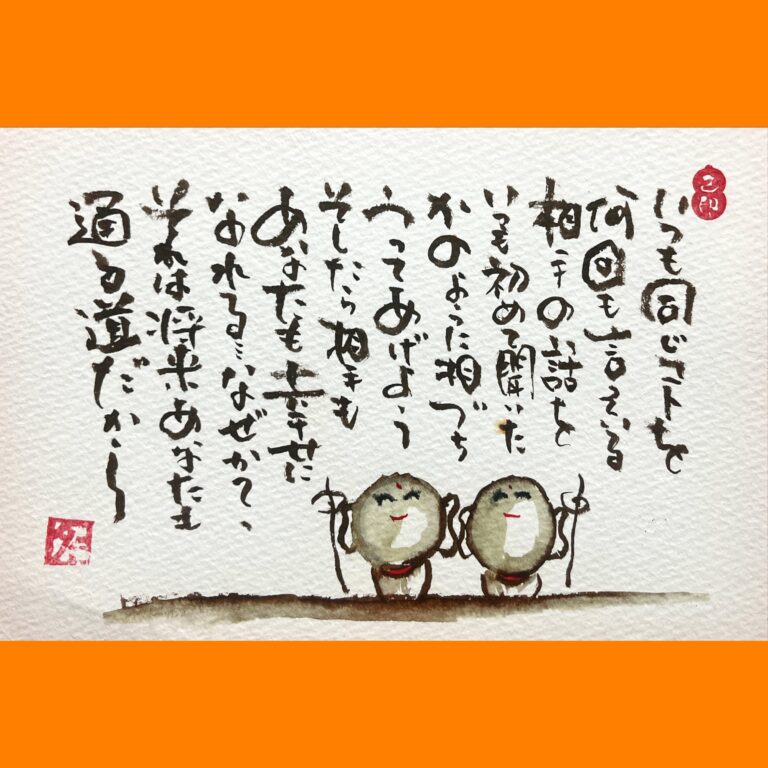 いつも同じコトを
何回も言っている
相手の話を
いつも初めて聞いた
かのように相づち
うってあげよう
そしたら相手も
あなたも幸せに
なれる…なぜかって、
それは将来あなたも
通る道だから